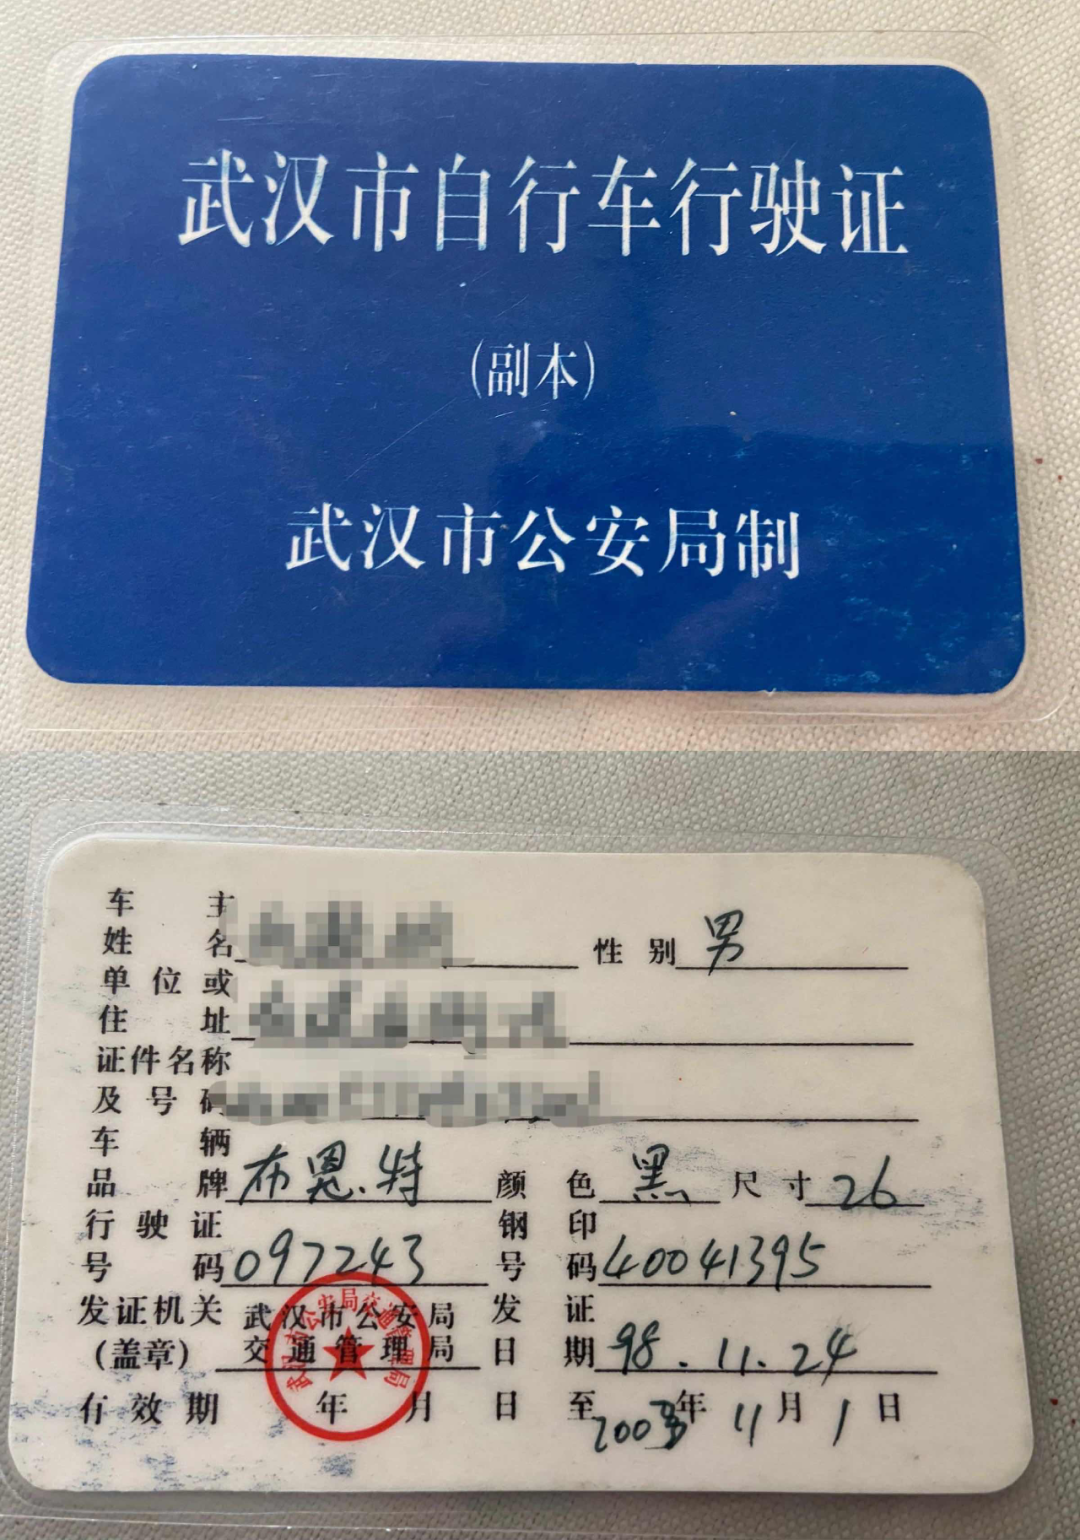 武汉市自行车行驶证
(副本)
武汉市公安局制
车主
姓名 性别 男
单位或
住址
证件名称
及号码
车辆
品牌 布恩.特 颜色 黑 尺寸 26
行驶证 钢印
号码 097243 号码 40041395
发证机关 武汉市公安局 发证
(盖章) 交通管理局 日期 98.11.24
有效期 年 月 日至 年 11 月 1 日
武汉市公安局交通管理局